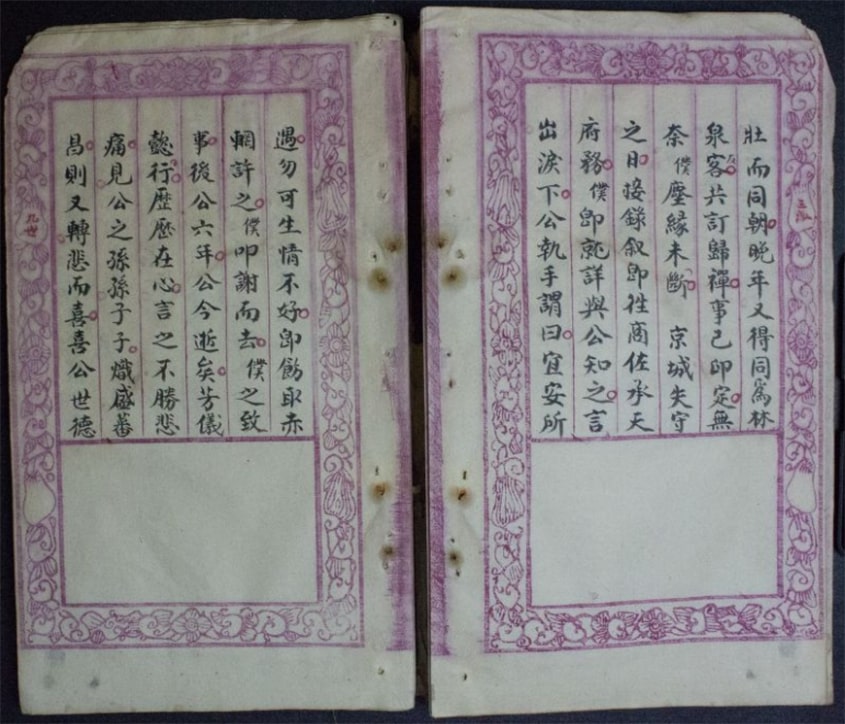 壯而同朝晚年又得同為林
泉客共訂歸禪事已印定無
奈僕塵緣未斷　京城失守
之日接錄叙即徃商佐承天
府務僕即就詳與公知之言
出淚下公執手謂曰宜安所
遇勿可生情不好即飭取赤
綱許之僕叩謝而去僕之致
事後公六年公今逝矣芳儀
懿行歷歷在心言之不勝悲
痛見公之孫孫子子熾盛蕃
昌則又轉悲而喜喜公世德
九世